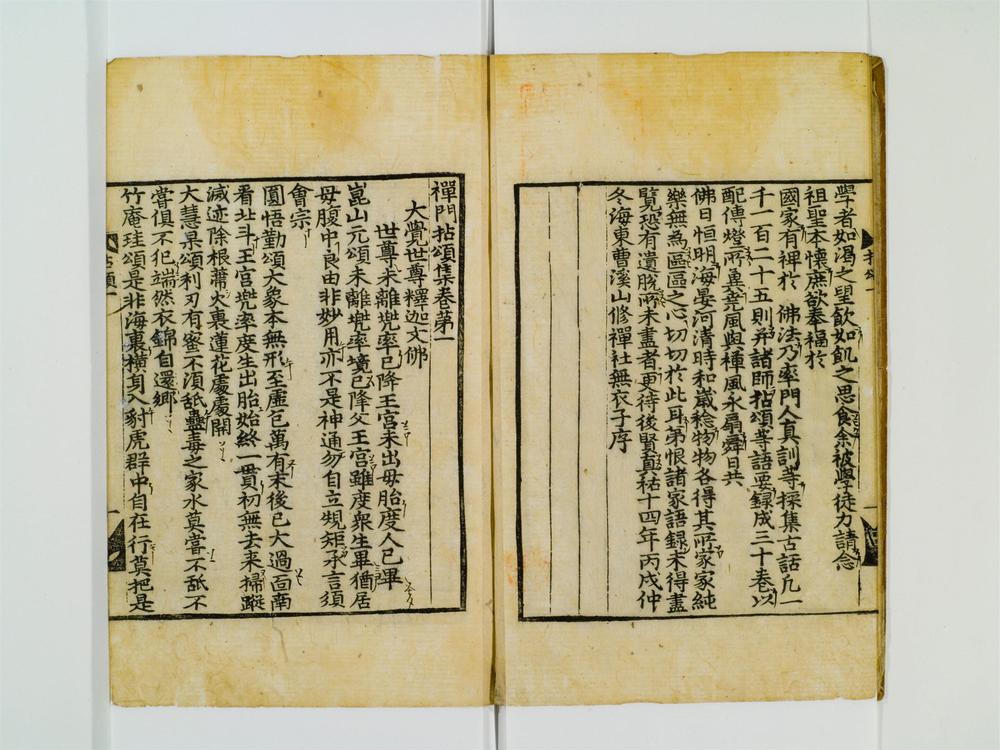 學者如渴之望飮如飢之思食余被學徒力請念
祖聖本懷庶欲奉福於
國家有裨於 佛法乃率門人眞訓等採集古話凡一
千一百二十五則幷諸師拈頌等語要錄成三十卷以
配傳燈所冀堯風與禪風永扇舜日共
佛日恒明海晏河淸時和歲稔物物各得其所家家純
樂無爲區區之心切切於此耳第恨諸家語錄未得盡
覽恐有遺脫所未盡者更待後賢貞祐十四年丙戌仲
冬海東曹溪山修禪社無衣子序
禪門拈頌集卷第一
大覺世尊釋迦文佛
世尊未離兜率已降王宮未出母胎度人已畢
崑山元頌未離兜率境已降父王宮雖度衆生畢猶居
母腹中良由非妙用亦不是神通勿自立規矩承言須
會宗
圓悟勤頌大象本無形至虛包萬有末後已大過面南
看北斗王宮兜率度生出胎始終一貫初無去來掃蹤
滅迹除根蔕火裏蓮花處處開
大慧杲頌利刃有蜜不須舐蠱毒之家水莫嘗不舐不
嘗俱不犯端然衣錦自還鄕
竹庵珪頌是非海裏橫身入豺虎群中自在行莫把是